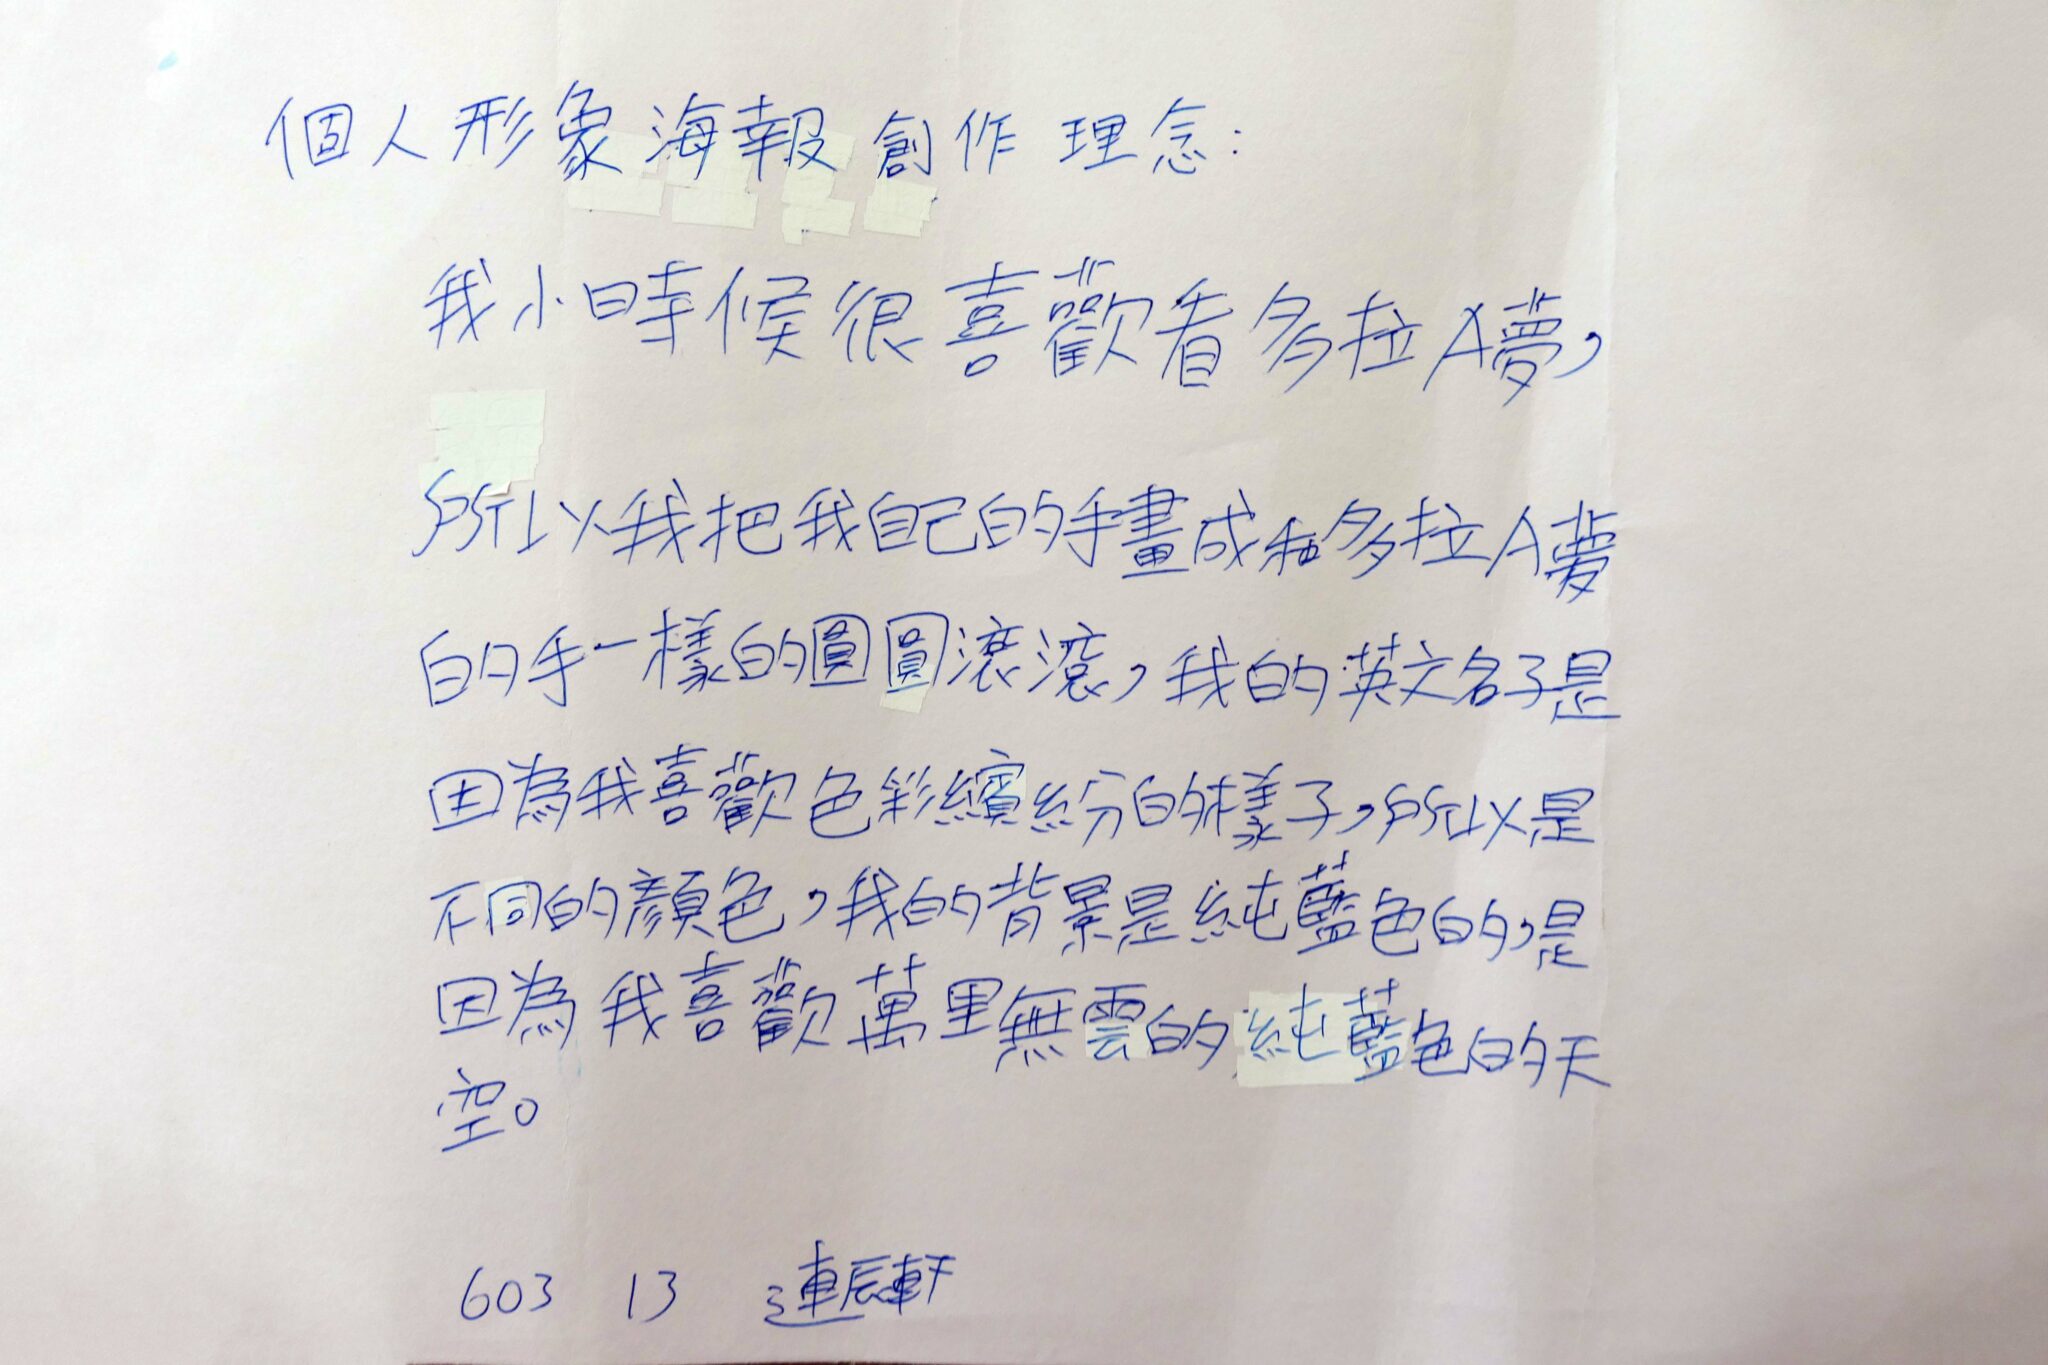 個人形象海報創作理念:
我小時候很喜歡看多拉A夢,
所以我把我自己的手畫成和多拉A夢
的手一樣的圓圓滾滾,我的英文名子是
因為我喜歡色彩繽紛的樣子,所以是
不同的顏色,我的背景是純藍色的,是
因為我喜歡萬里無雲的純藍色的天
空。
603 13 連宸軒